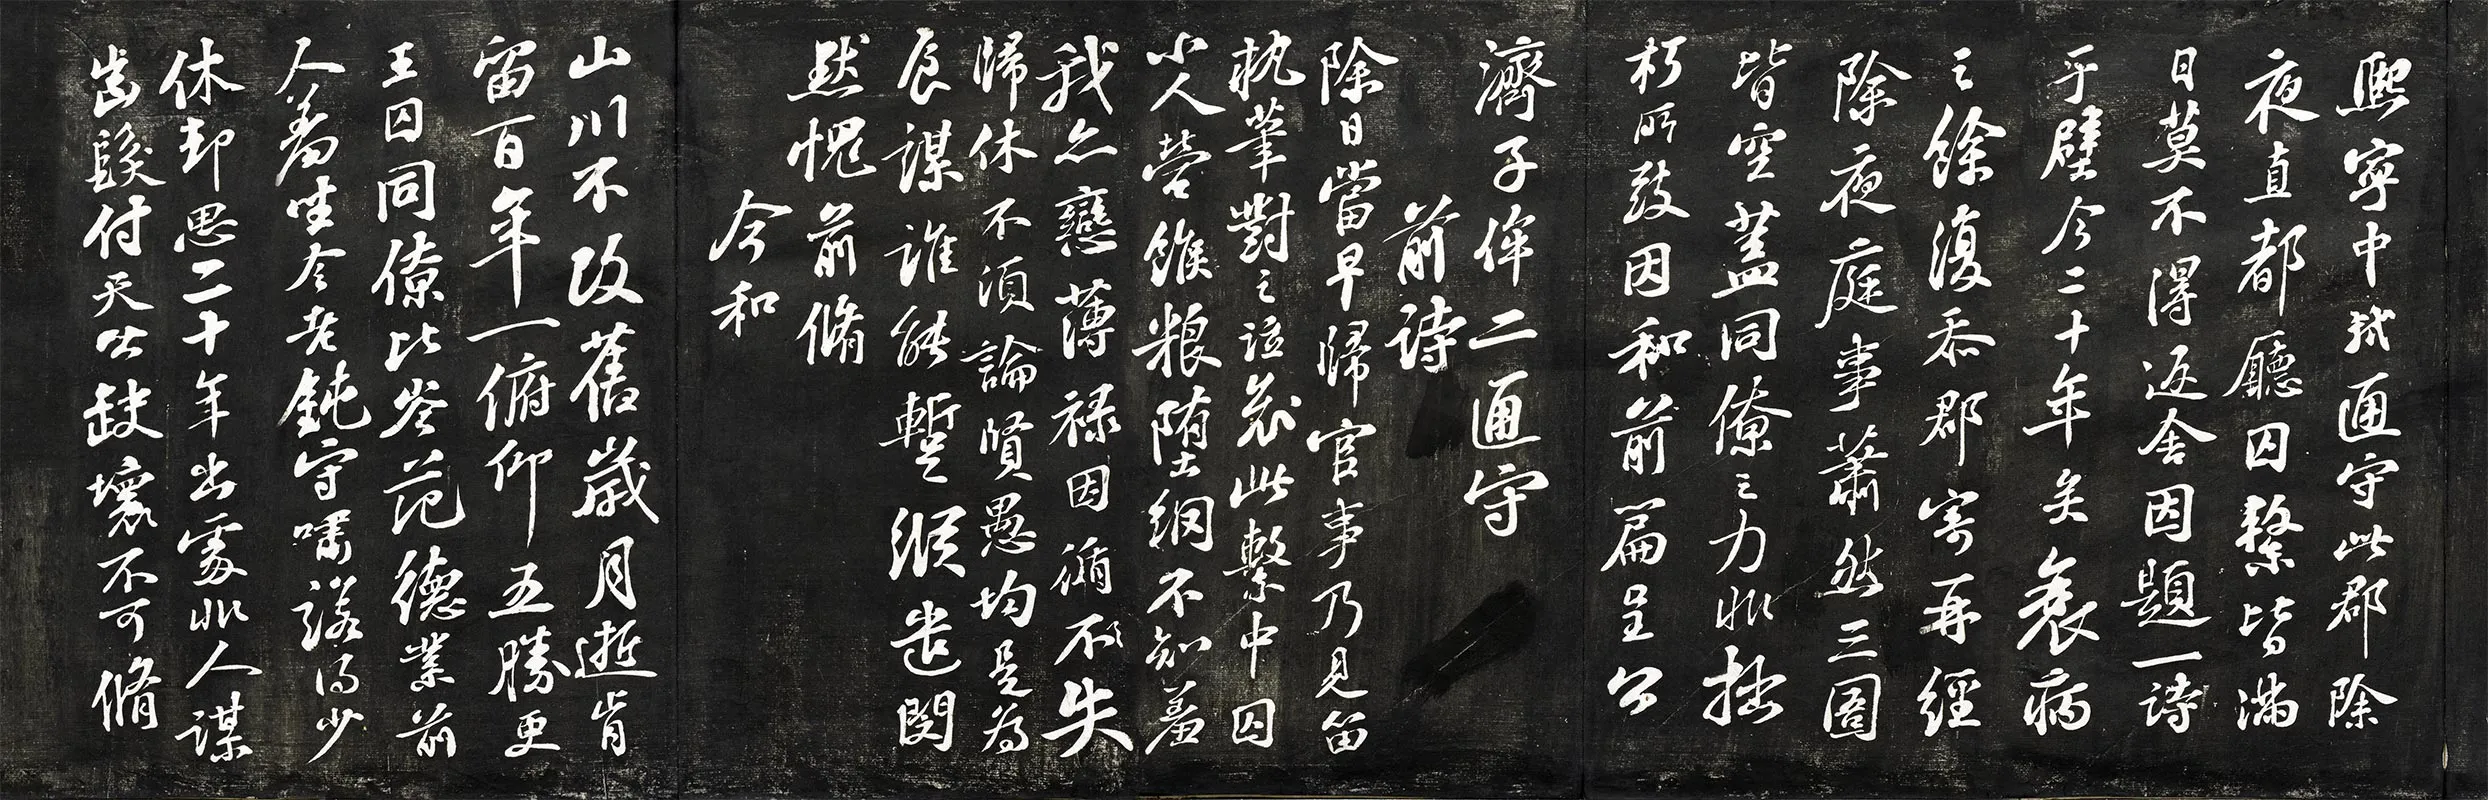 熙寧中軾通守此郡除
夜直都廳囚繫皆滿
日莫不得返舍因題一詩
于壁今二十年矣衰病
之餘復忝郡寄再經
除夜庭事蕭然三圄
皆空蓋同僚之力非拙
朽所致因和前篇呈公
濟子侔二通守
前詩
除日當早歸官事乃見留
執筆對之泣哀此繫中囚
小人營餱粮墮網不知羞
我亦戀薄祿因循不失
歸休不須論賢愚均是為
食謀誰能暫縱遣閔
默愧前脩
今和
山川不改舊歲月逝肯
留百年一俯仰五勝更
王囚同僚比岑范德業前
人羞坐令老鈍守嘯諾得少
休却思二十年出處非人謀
齒髮付天公缺壞不可脩